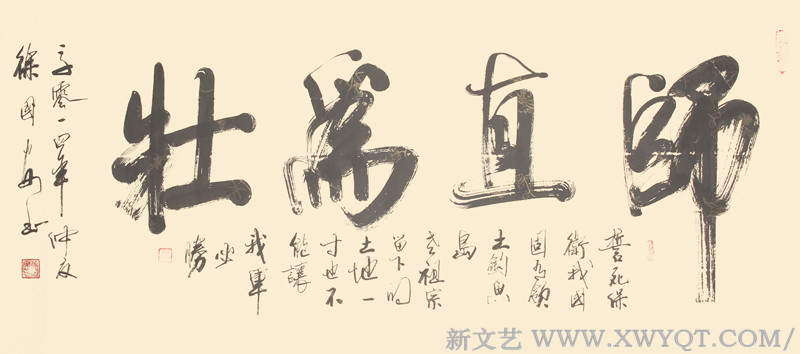 師直為壮
誓死保
衛我國
固有領
土釣魚
島
老祖宗
留下的
土地一
寸也不
能讓
我軍
必
勝
二零一四年仲夏
徐國
新文艺/WWW.XWYQT.COM/